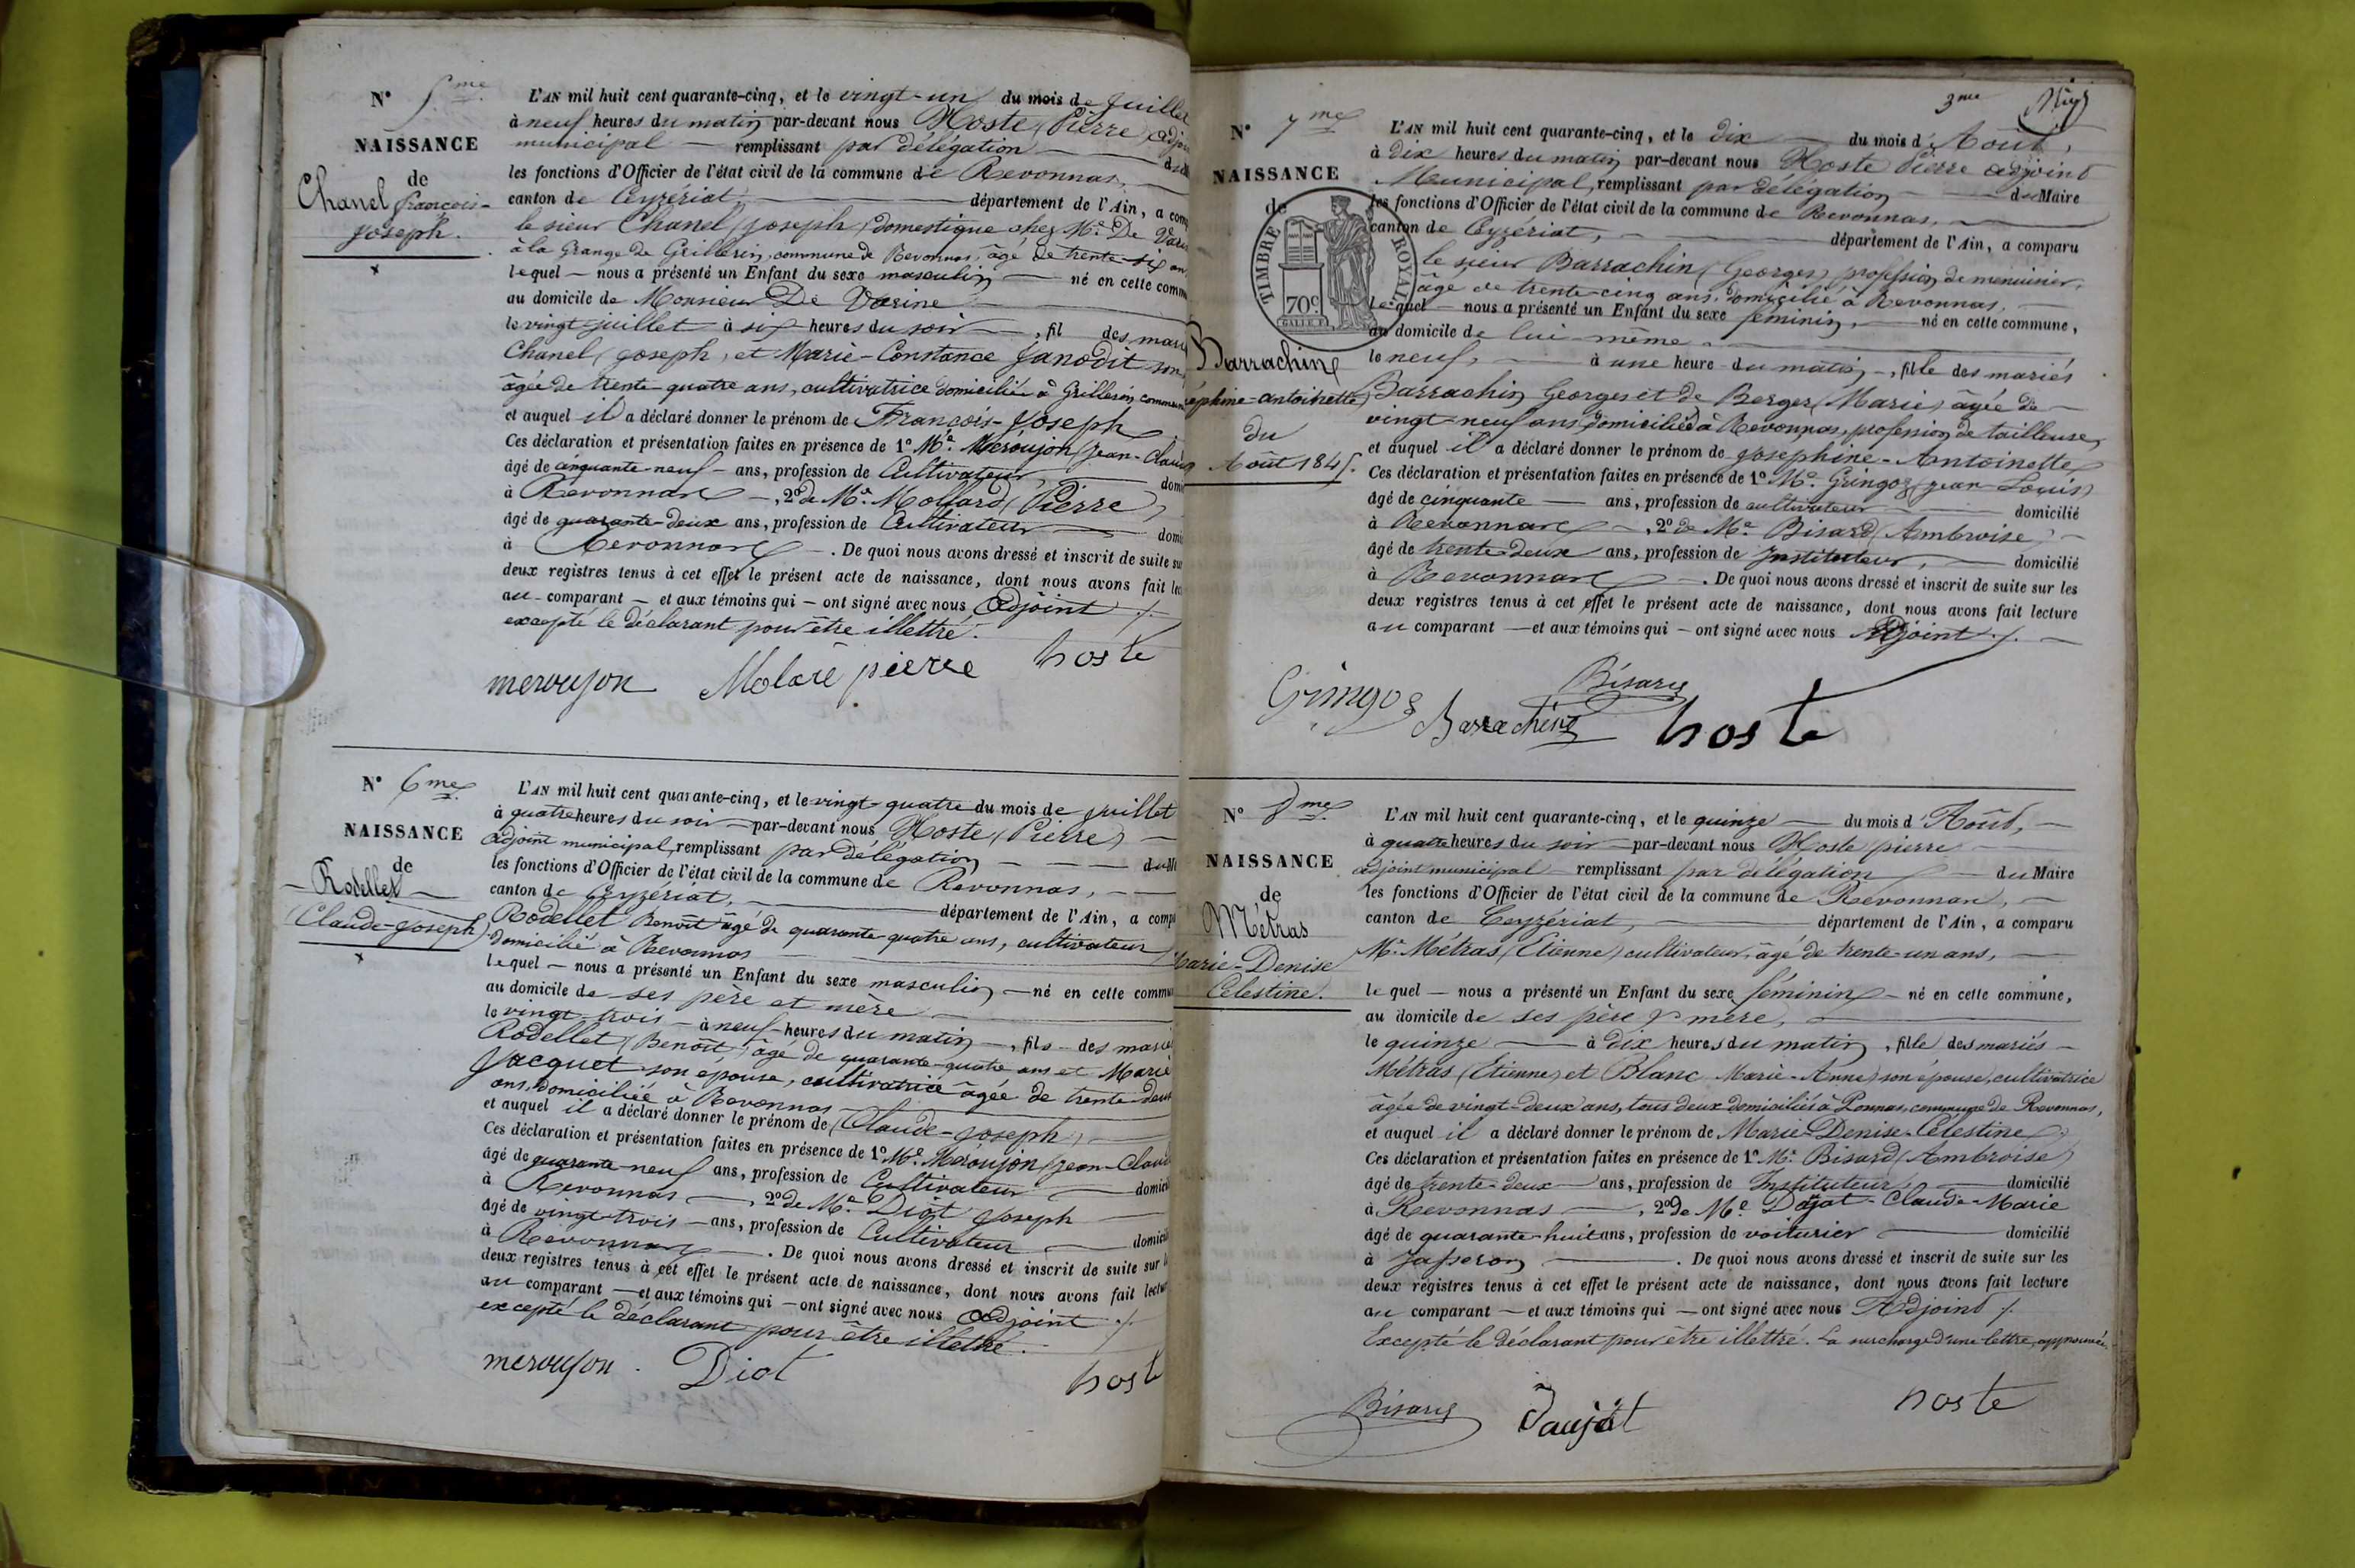 N° 5me
NAISSANCE
de
Chanel françois-
joseph.
L'AN mil huit cent quarante-cinq, et le vingt-un du mois de Juillet
à neuf heures du matin par-devant nous Hoste (Pierre) adjoin
municipal — remplissant par délégation —
les fonctions d'Officier de l'état civil de la commune de Revonnas,
canton de Ceyzériat, département de l'Ain, a com
le sieur Chanel (joseph) domestique chez Mr. De Vari
à la Grange de Grillerin, commune de Revonnas, âgé de trente-six an
lequel — nous a présenté un Enfant du sexe masculin — né en cette comm
au domicile de Monsieur De Varine
le vingt juillet à six heures du soir —, fil des mari
Chanel (joseph) et Marie-Constance Janodit son
âgée de trente-quatre ans, cultivatrice domiciliée à Grillerin, commune
et auquel il a déclaré donner le prénom de François-Joseph
Ces déclaration et présentation faites en présence de 1° Mr. Méroujon (jean-Claud
âgé de cinquante-neuf ans, profession de Cultivateur, domi
à Revonnas —, 2° de Mr. Mollard (Pierre)
âgé de quarante-deux ans, profession de Cultivateur domi
à Revonnas —. De quoi nous avons dressé et inscrit de suite su
deux registres tenus à cet effet le présent acte de naissance, dont nous avons fait lec
au comparant — et aux témoins qui — ont signé avec nous Adjoint ./.
excepté le déclarant pour être illettré.
meroujon Molare pierre hoste
N° 6me
NAISSANCE
de
Rodellet
(Claude-joseph)
L'AN mil huit cent quarante-cinq, et le vingt-quatre du mois de juillet
à quatre heures du soir — par-devant nous Hoste (Pierre) —
adjoint municipal, remplissant par délégation — du M
les fonctions d'Officier de l'état civil de la commune de Revonnas,
canton de Ceyzériat, département de l'Ain, a comp
Rodellet Benoît âgé de quarante-quatre ans, cultivateur
domicilié à Revonnas
lequel — nous a présenté un Enfant du sexe masculin — né en cette commun
au domicile de ses père et mère
le vingt-trois — à neuf heures du matin —, fils des marié
Rodellet (Benoît) âgé de quarante-quatre ans et Marie
Jacquet son épouse, cultivatrice âgée de trente-deux
ans, domiciliée à Revonnas
et auquel il a déclaré donner le prénom de (Claude-joseph)
Ces déclaration et présentation faites en présence de 1° Mr. Méroujon (jean-Claud
âgé de quarante-neuf ans, profession de Cultivateur — domici
à Revonnas —, 2° de Mr. Diot Joseph
âgé de vingt-trois — ans, profession de Cultivateur — domicil
à Revonnas —. De quoi nous avons dressé et inscrit de suite sur l
deux registres tenus à cet effet le présent acte de naissance, dont nous avons fait lectur
au comparant — et aux témoins qui — ont signé avec nous Adjoint ./.
excepté le déclarant pour être illettré.
meroujon. Diot hoste
3me
N° 7me
NAISSANCE
de
TIMBRE ROYAL
70c
Barrachin
éphine-antoinette)
du
Août 1845.
L'AN mil huit cent quarante-cinq, et le dix — du mois d'Août,
à dix heures du matin par-devant nous Hoste Pierre adjoint
Municipal, remplissant par délégation — du Maire
les fonctions d'Officier de l'état civil de la commune de Revonnas,
canton de Ceyzériat, département de l'Ain, a comparu
le sieur Barrachin (Georges) profession de menuisier,
âgé de trente-cinq ans, domicilié à Revonnas,
lequel — nous a présenté un Enfant du sexe féminin, — né en cette commune,
au domicile de lui-même
le neuf, — à une heure du matin —, fille des mariés
Barrachin Georges et de Berger (Marie) âgée de
vingt-neuf ans domiciliés à Revonnas, profession de tailleuse,
et auquel il a déclaré donner le prénom de josephine-Antoinette
Ces déclaration et présentation faites en présence de 1° Mr. Gringoz (jean-Louis)
âgé de cinquante — ans, profession de cultivateur — domicilié
à Revonnas —, 2° de Mr. Bisard (Ambroise)
âgé de trente-deux ans, profession de Instituteur, — domicilié
à Revonnas —. De quoi nous avons dressé et inscrit de suite sur les
deux registres tenus à cet effet le présent acte de naissance, dont nous avons fait lecture
au comparant — et aux témoins qui — ont signé avec nous Adjoint ./.
Gringoz Barrachin Bisard hoste
N° 8me
NAISSANCE
de
Métras
Marie-Denise
Célestine.
L'AN mil huit cent quarante-cinq, et le quinze — du mois d'Août,
à quatre heures du soir — par-devant nous Hoste pierre
adjoint municipal remplissant par délégation — du Maire
les fonctions d'Officier de l'état civil de la commune de Revonnas,
canton de Ceyzériat, département de l'Ain, a comparu
Mr. Métras (Etienne) cultivateur, âgé de trente-un ans,
lequel — nous a présenté un Enfant du sexe féminin — né en cette commune,
au domicile de ses père & mère,
le quinze — à dix heures du matin, fille des mariés —
Métras (Etienne) et Blanc Marie-Anne) son épouse, cultivatrice
âgée de vingt-deux ans, tous deux domiciliés à Ronnas, commune de Revonnas,
et auquel il a déclaré donner le prénom de Marie-Denise-Célestine
Ces déclaration et présentation faites en présence de 1° Mr. Bisard (Ambroise)
âgé de trente-deux — ans, profession de Instituteur — domicilié
à Revonnas —, 2° de Mr. Dajat-Claude-Marie
âgé de quarante-huit ans, profession de voiturier — domicilié
à Jasseron —. De quoi nous avons dressé et inscrit de suite sur les
deux registres tenus à cet effet le présent acte de naissance, dont nous avons fait lecture
au comparant — et aux témoins qui — ont signé avec nous Adjoint ./.
Excepté le déclarant pour être illettré. La surcharge d'une lettre approuvée
Bisard Daujat hoste